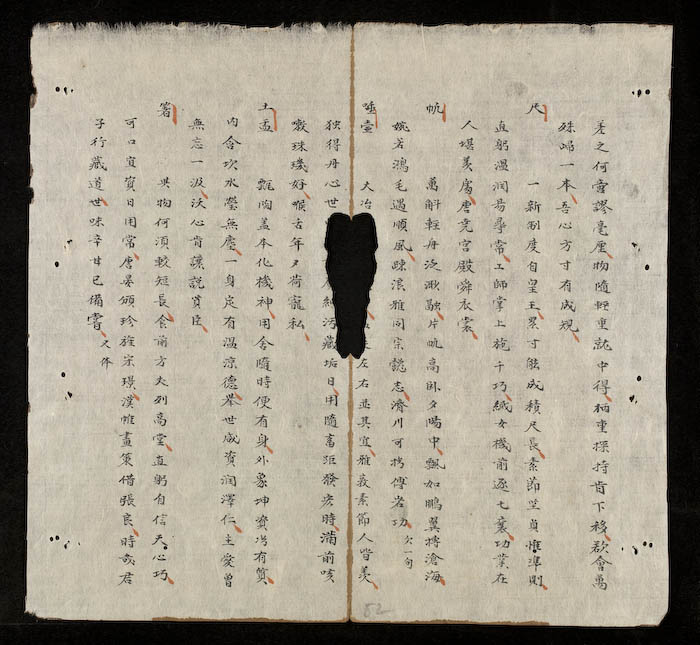 差之何啻謬毫厘物隨輕重就中得柄重操持肯下移欲會萬
殊歸一本吾心方寸有成規
尺 一新制度自 王累寸能成積尺長素節堅貞惟準則
直躬溫润昜尋常工師掌上施千巧織女機前逐七襄功業在
人堪羡處唐堯宮殿舜衣裳
帆 萬斛輕舟泛 融片帆高卧夕陽中飄如鵬翼摶滄海
婉若鴻毛遇順風踈浪雅同宗慤志濟川可擬傅岩功 欠一句
唾壺 大冶 左右並其宜雅義素節人皆羡
独得丹心世 純污藏垢日用隨畜 發度時满前咳
嗽珠璣好喉舌年夕荷寵私
土盂 瓢陶盖本化機神用舍隨時便有身外象坤 当有質
内含坎水瑩無塵一身定有温涼德舉世咸資润澤仁主爱曾
無忘一汲沃心肯讓説賢臣
箸 與物何須較短長食前方丈列高堂直躬自信天心巧
可口 賓日用常唐宴頒珍旌宋璟漢帷畫策借張良時哉君
子行藏道世味辛甘已備嘗 又作
82